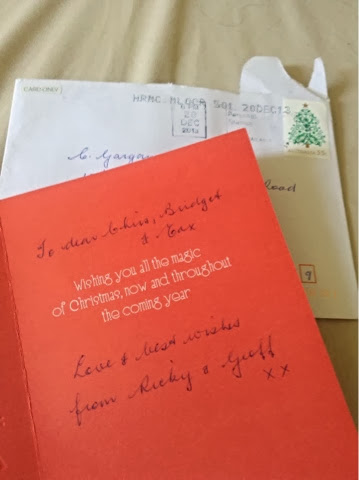 CARD ONLY
HRMC.MLOCR SQ1 20DEC12
6 PM
20
DEC
2012
C. Gargan
Road
To dear Chris, Bridget
& Max
Wishing you all the magic
of Christmas, now and throughout
the coming year
Love & best wishes
from Ricky & Geoff
x x
9